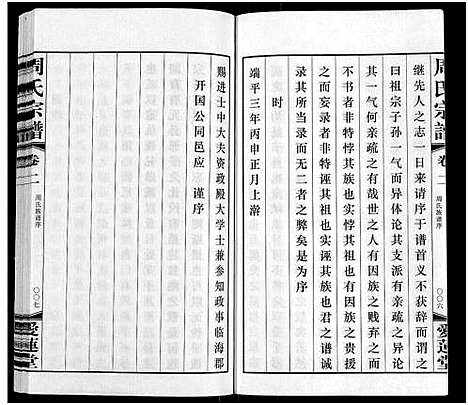 周氏宗譜
卷二
周氏族谱序
〇〇六
愛蓮堂
继先人之志一日来请序于谱首义不获辞而谓之
曰祖宗子孙一气而异体论其支派有亲疏之异论
其一气何亲疏之有哉世之人有因族之贱弃之而
不书者非特悖其族也实悖其祖也有因族之贵援
之妄录者非特诬其祖也实诬其族也君之谱诚
录其所当录而无二者之弊矣是为序
时
端平三年丙申正月上澣
赐进士中大夫资政殿大学士兼参知政事临海郡
开国公同邑应　谨序
周氏宗譜
卷二
周氏族谱序
〇〇七
愛蓮堂